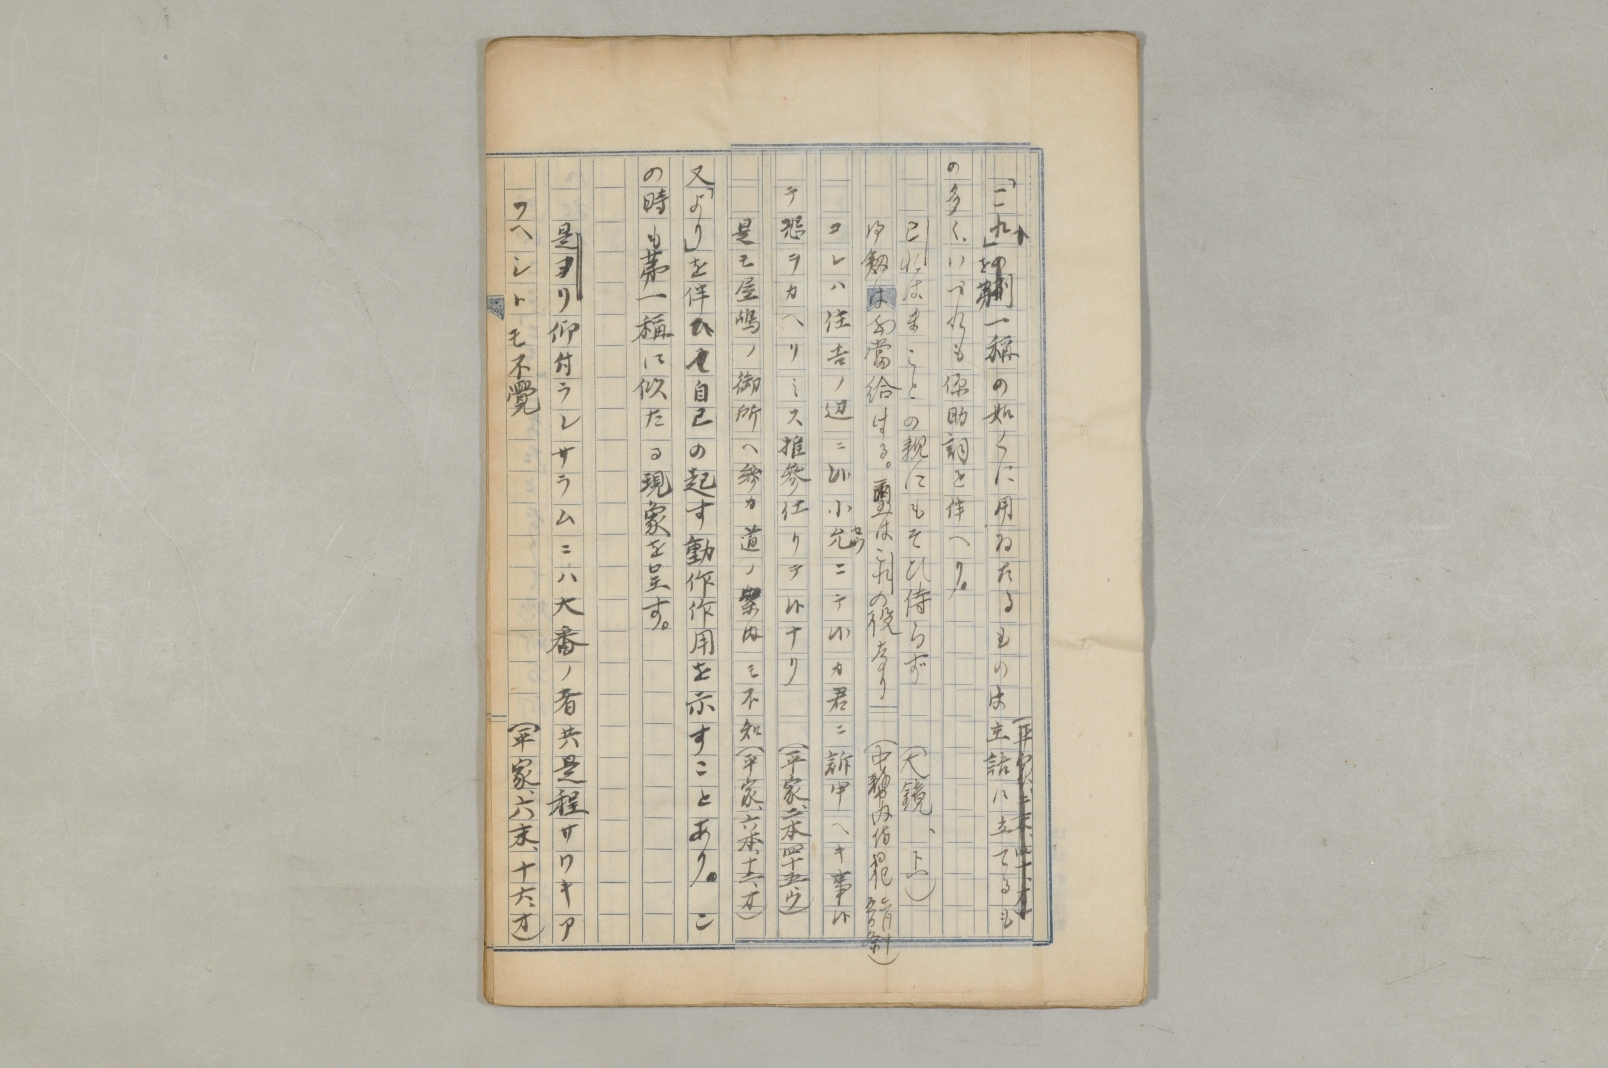 「これ」を第一稱の如くに用ゐたるものは主語に立てるも
の多く、いづれも係助詞を伴へり。
これはまことの親にもそひ侍らず (大鏡、下)
は勾當給はる。璽はこれの役なり
コレハ住吉ノ辺ニ候小允ニテ候カ君ニ訴申ヘキ事候
テ恐ヲカヘリミス推參仕リテ候ナリ (平家、二本、四十五ウ)
是モ屋嶋ノ御所ヘ參カ道ノ案内ミ不知 (平家、六本、十六、オ)
又「より」を伴ひて自己の起す動作作用を示すことあり。こ
の時も第一稱に似たる現象を呈す。
是ヨリ仰付ラレサラムニハ大番ノ者共是程サワキア
ワヘシトモ不覺 (平家、六末、十六、オ)